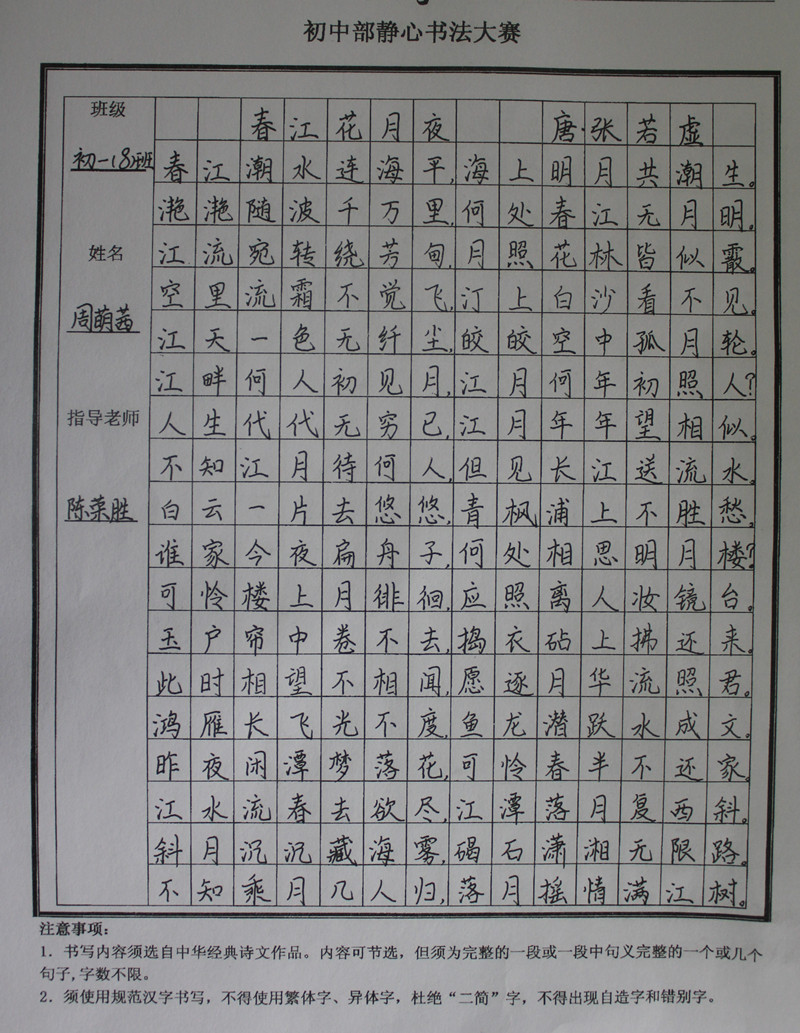 初中部静心书法大赛
班级
初一18班
姓名
周萌茜
指导老师
陈荣胜
春江花月夜 唐·张若虚
春江潮水连海平,海上明月共潮生。
滟滟随波千万里,何处春江无月明。
江流宛转绕芳甸,月照花林皆似霰。
空里流霜不觉飞,汀上白沙看不见。
江天一色无纤尘,皎皎空中孤月轮。
江畔何人初见月,江月何年初照人?
人生代代无穷已,江月年年望相似。
不知江月待何人,但见长江送流水。
白云一片去悠悠,青枫浦上不胜愁。
谁家今夜扁舟子,何处相思明月楼?
可怜楼上月徘徊,应照离人妆镜台。
玉户帘中卷不去,捣衣砧上拂还来。
此时相望不相闻,愿逐月华流照君。
鸿雁长飞光不度,鱼龙潜跃水成文。
昨夜闲潭梦落花,可怜春半不还家。
江水流春去欲尽,江潭落月复西斜。
斜月沉沉藏海雾,碣石潇湘无限路。
不知乘月几人归,落月摇情满江树。
注意事项:
1．书写内容须选自中华经典诗文作品。内容可节选，但须为完整的一段或一段中句义完整的一个或几个
句子,字数不限。
2．须使用规范汉字书写，不得使用繁体字、异体字，杜绝“二简”字，不得出现自造字和错别字。